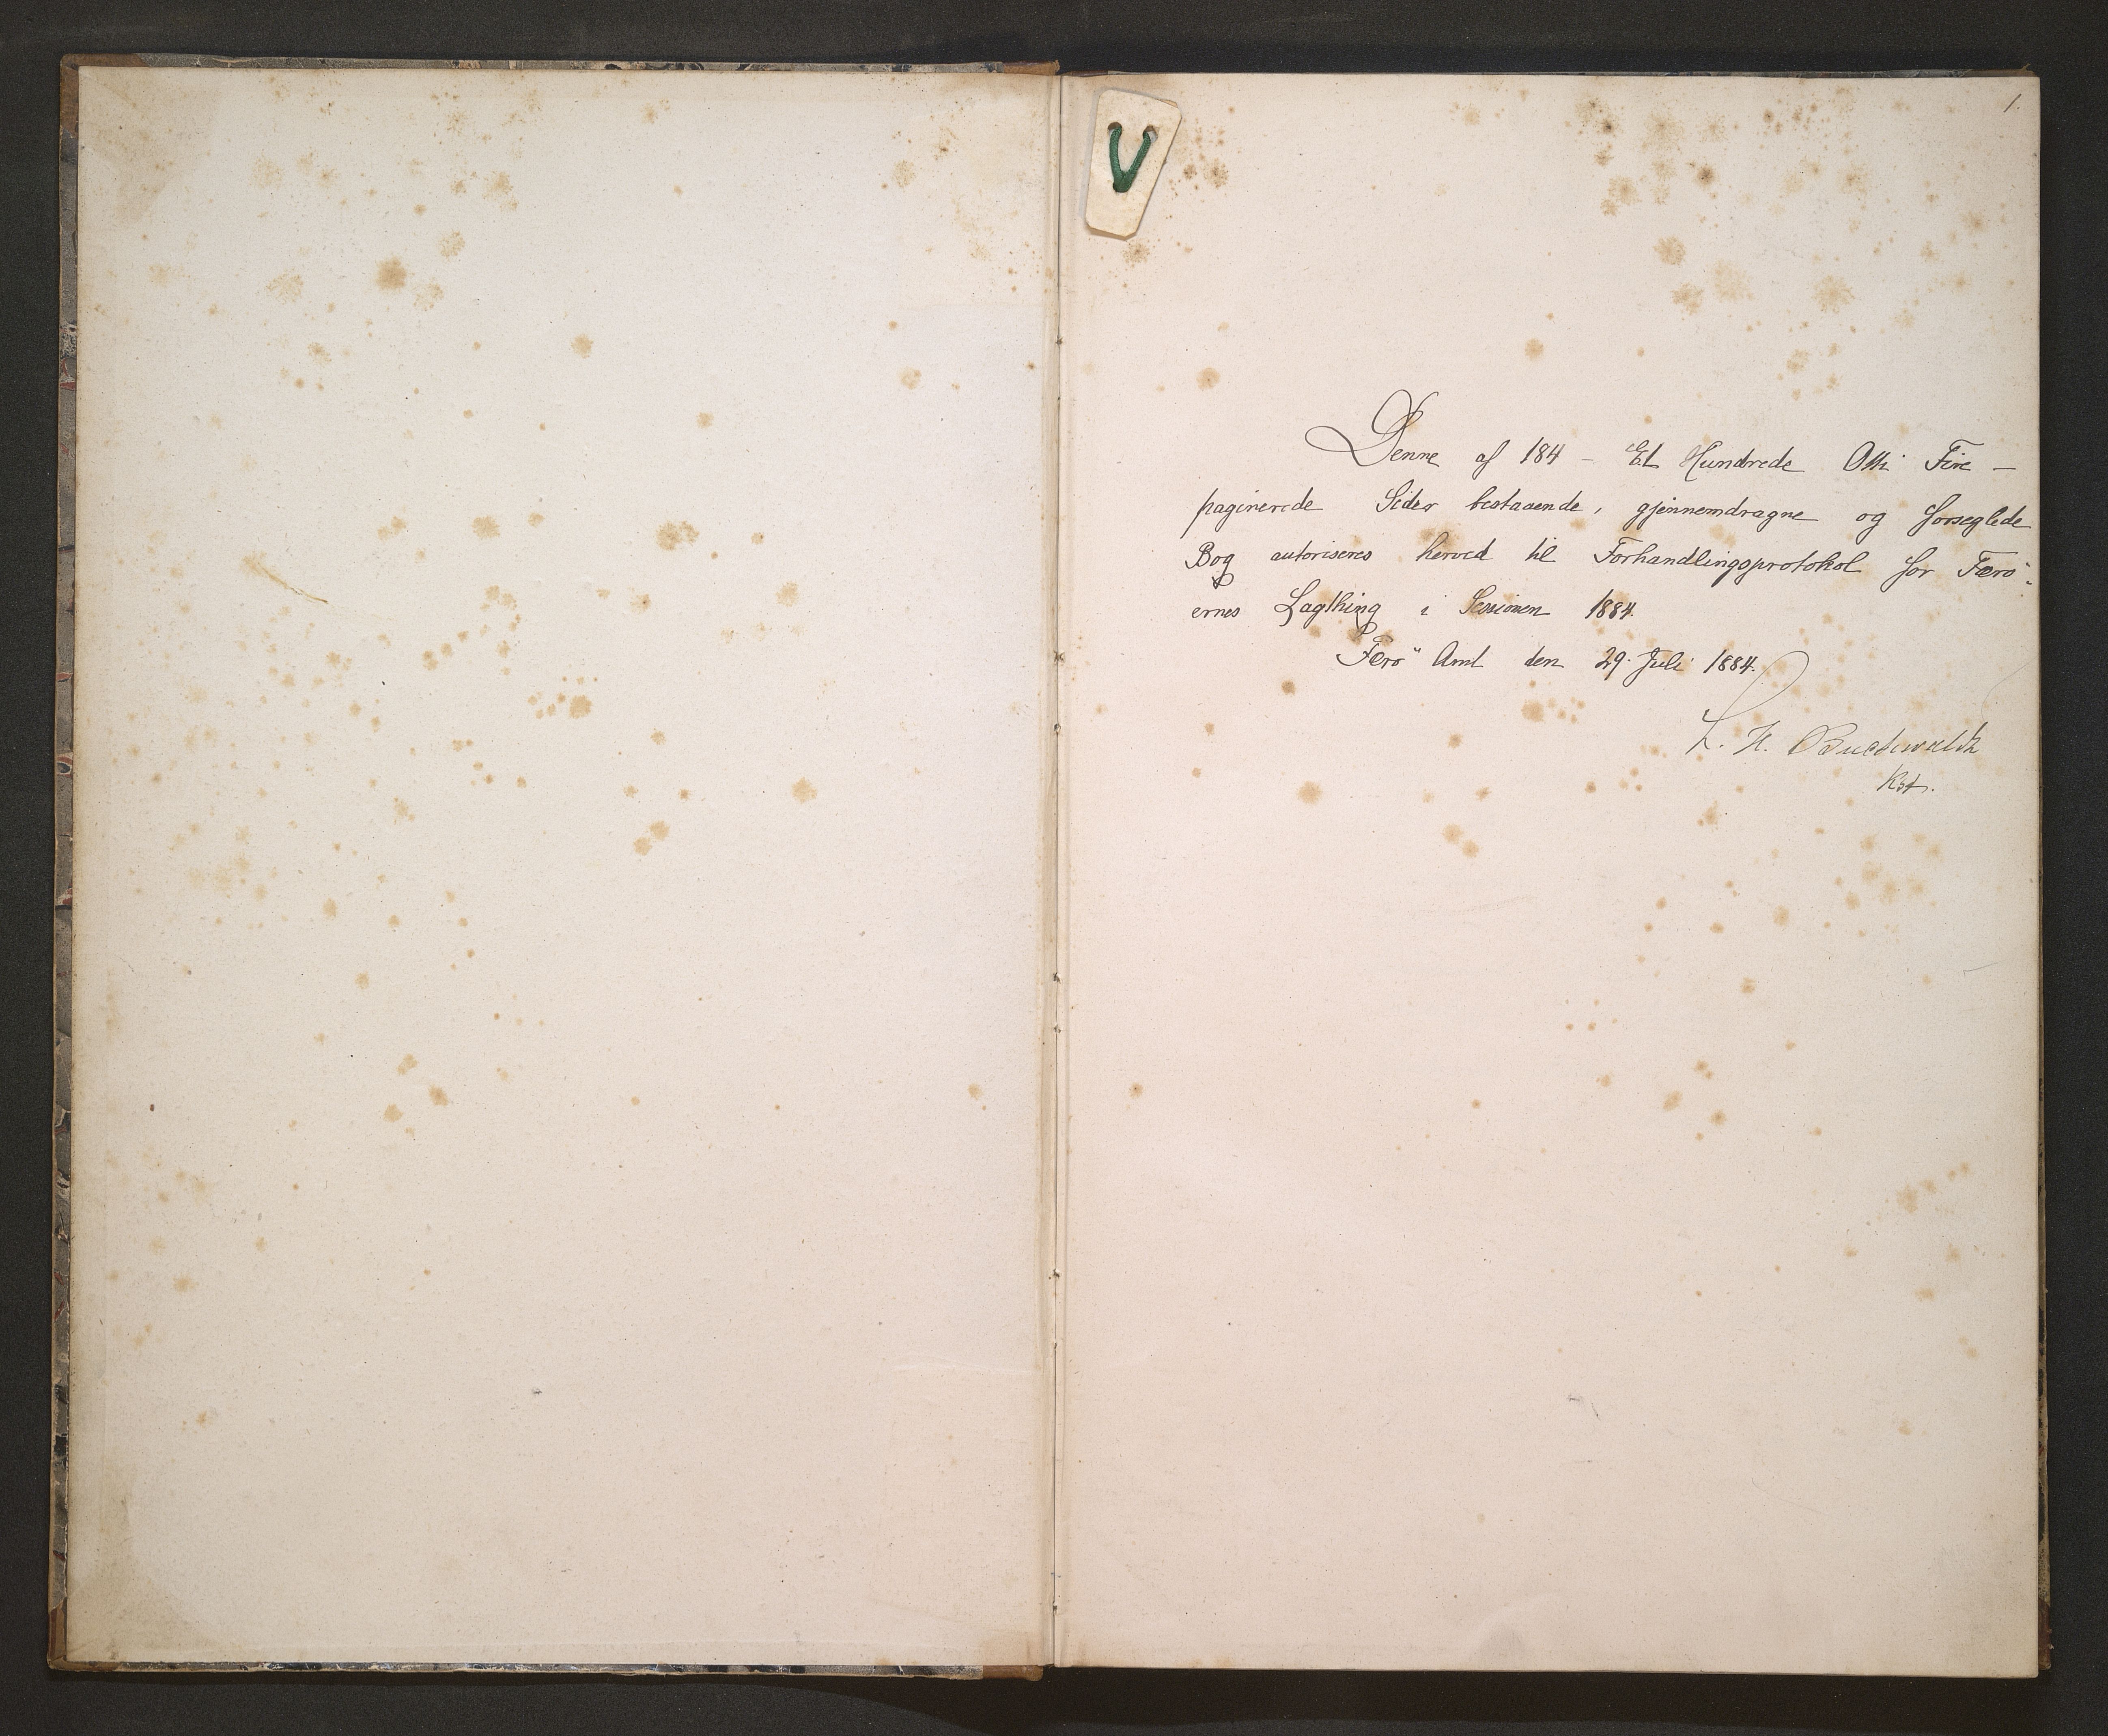 1.
Denne af 184 – Et Hundrede Otti Fire –
paginerede Sider bestaaende, gjennemdragne og forseglede
Bog autoriseres herved til Forhandlingsprotokol for Færö-
ernes Lagthing i Sessionen 1884.
Færö Amt den 29. Juli 1884.
L. H. Buchwaldt
Kst.